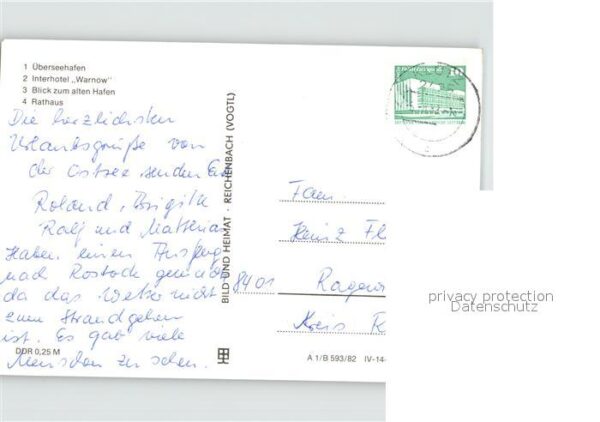 1 Überseehafen
2 Interhotel „Warnow"
3 Blick zum alten Hafen
4 Rathaus
Die herzlichsten
Urlaubsgrüße von
der Ostsee senden Euch
Roland, Brigitte
Ralf und
Haben einen Ausflug
nach Rostock gemacht
da das Wetter nicht
zum Strandgehen
ist. Es gab viele
Menschen zu sehen.
DDR 0,25 M
BILD UND HEIMAT · REICHENBACH (VOGTL)
10
Fam.
Heinz
8401
Kreis
A 1/B 593/82 IV-14-
privacy protection
Datenschutz